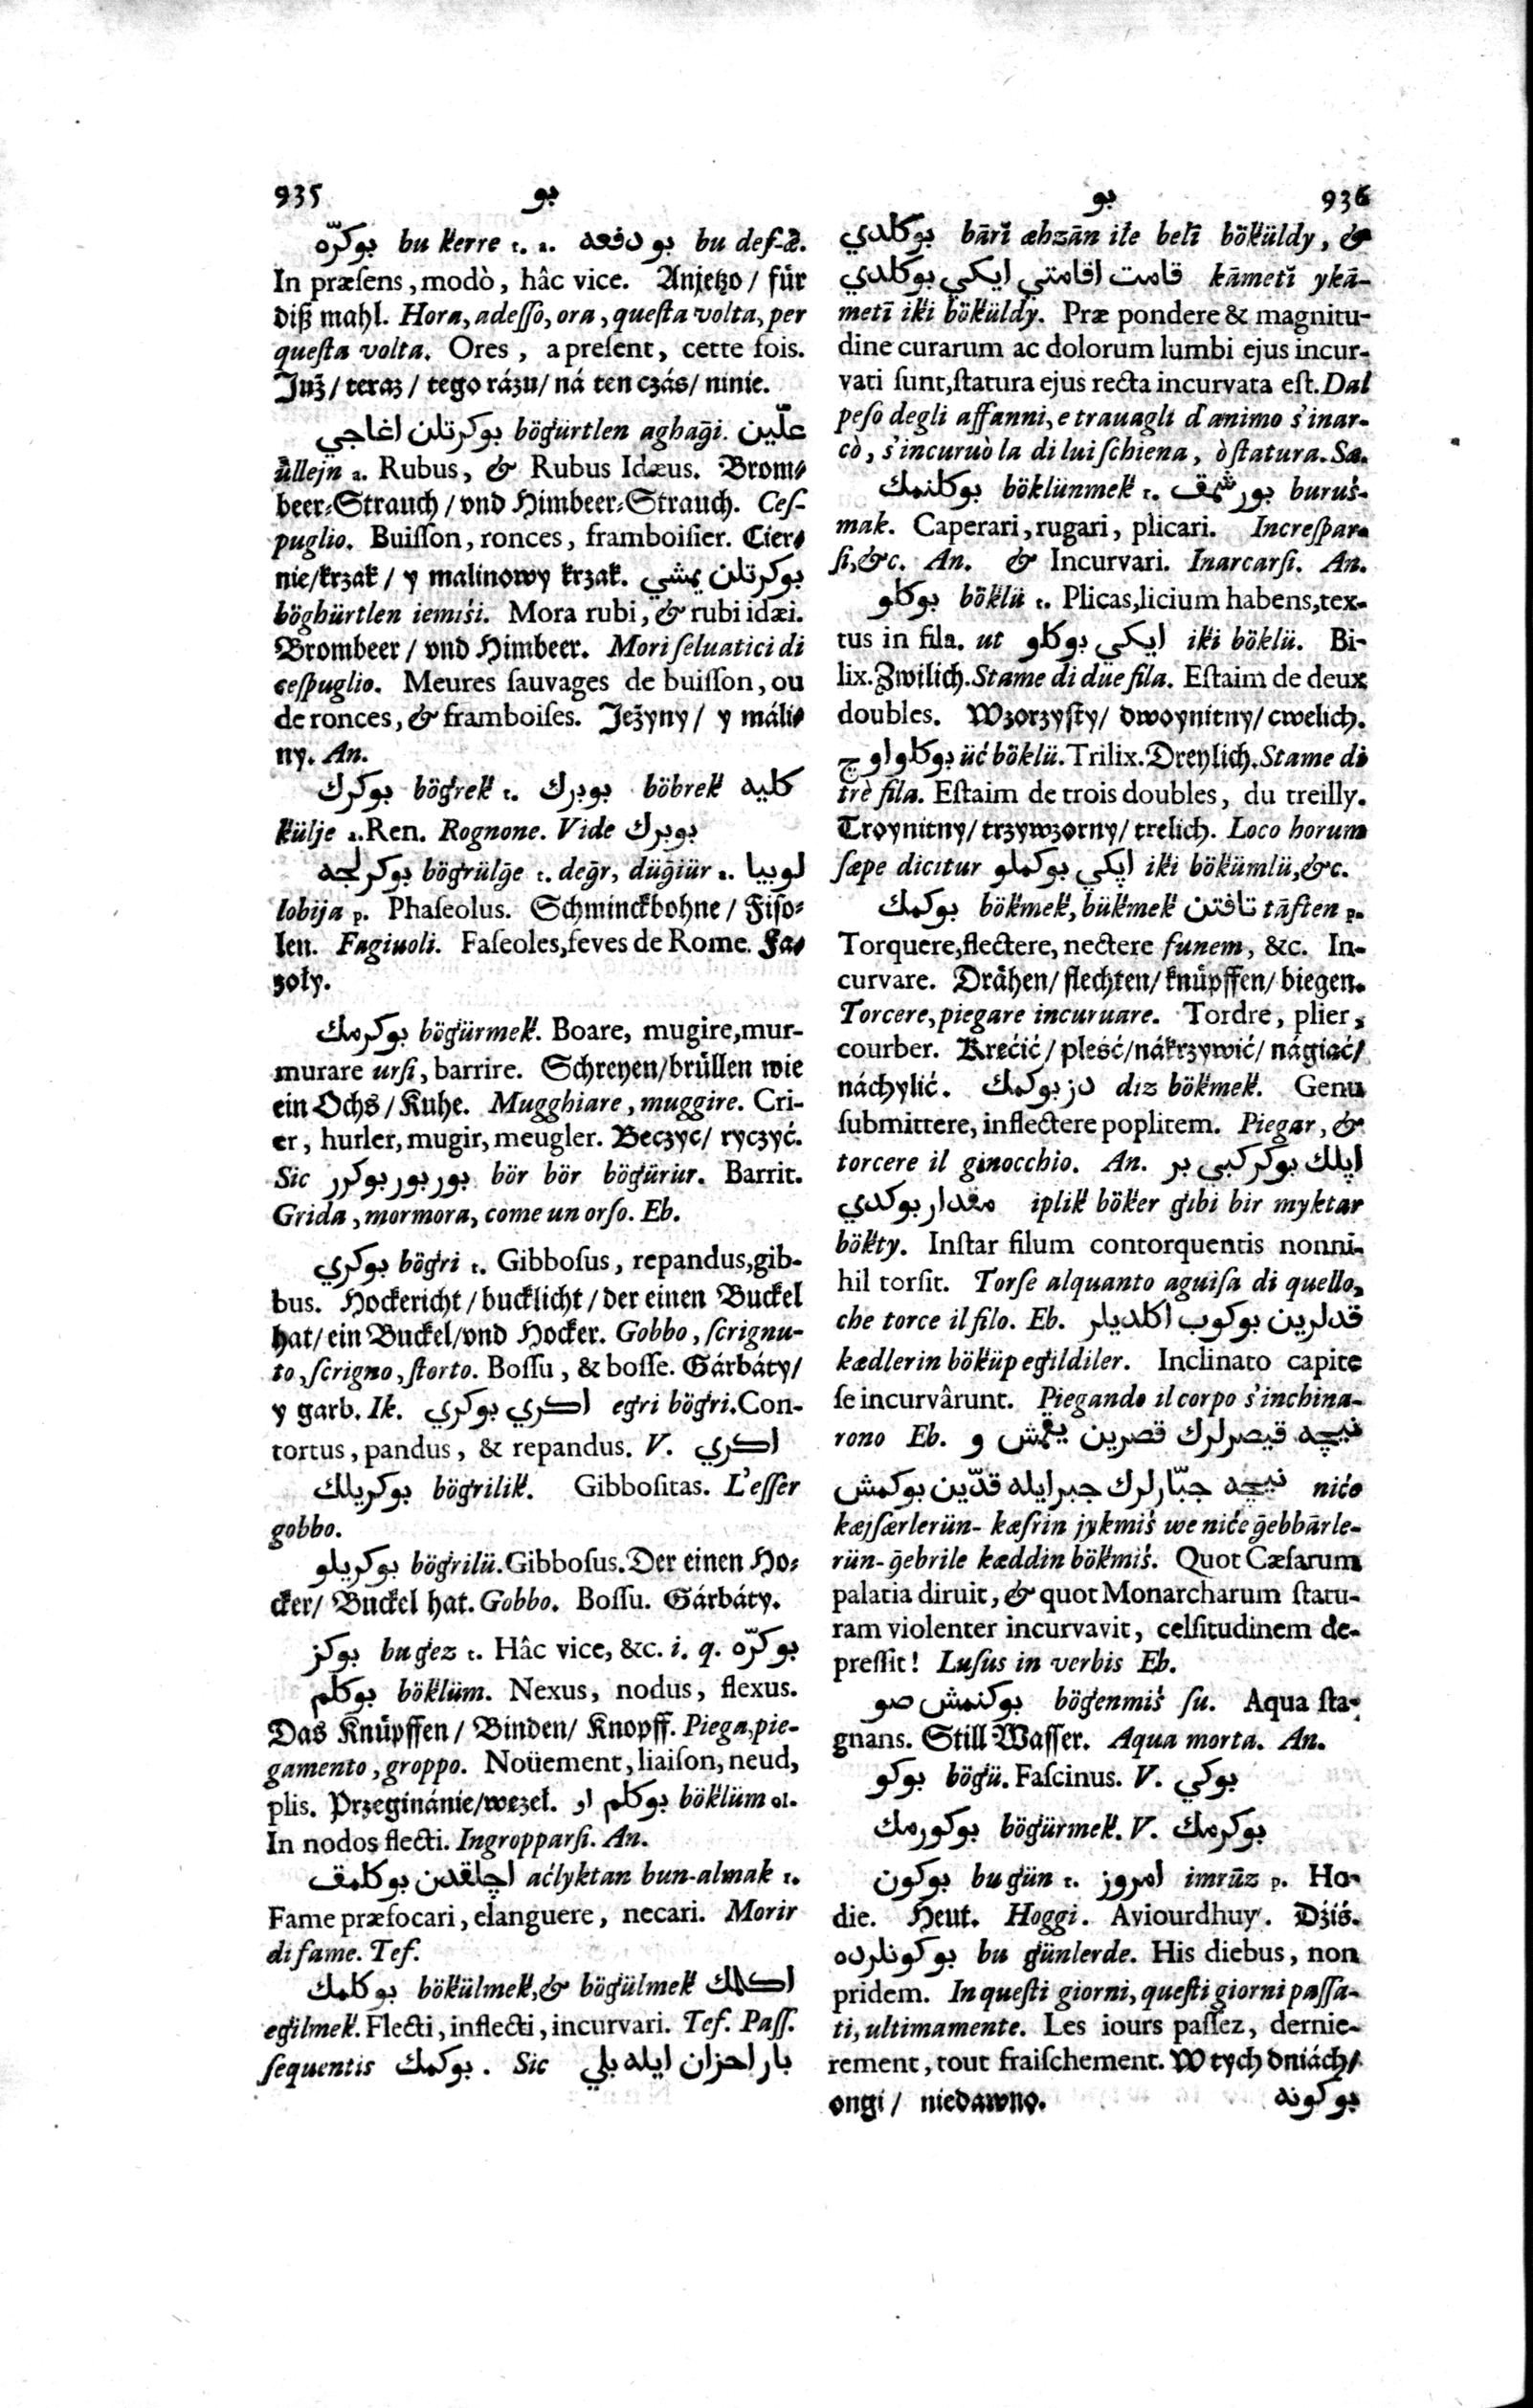 935 بو
بوكرّه bu kerre t. a. بو دفعه bu def-æ.
In præsens, modò, hâc vice. Anjetzo / für
diß mahl. Hora, adesso, ora, questa volta, per
questa volta. Ores, a present, cette fois.
Już / teraz / tego rázu / ná ten czás / ninie.
بوكرتلن اغاجي böğürtlen aghaǧi. علّين
üllejn a. Rubus, & Rubus Idæus. Brom-
beer-Strauch / vnd Himbeer-Strauch. Ces-
puglio. Buisson, ronces, framboisier. Cier-
nie/krzak / y malinowy krzak. بوكرتلن يمشي
böghürtlen iemiśi. Mora rubi, & rubi idæi.
Brombeer / vnd Himbeer. Mori seluatici di
cespuglio. Meures sauvages de buisson, ou
de ronces, & framboises. Jeżyny / y máli-
ny. An.
بوكرك böğrek t. بوبرك böbrek كليه
külje a. Ren. Rognone. Vide بوبرك
بوكرلجه böğrülǧe t. deǧr, düǧiür a. لوبيا
lobija p. Phaseolus. Schminckbohne / Fiso-
len. Fagiuoli. Faseoles, feves de Rome. Fa-
zoły.
بوكرمك böğürmek. Boare, mugire, mur-
murare ursi, barrire. Schreyen/brüllen wie
ein Ochs / Kuhe. Mugghiare, muggire. Cri-
er, hurler, mugir, meugler. Beczyc/ ryczyć.
Sic بور بور بوكرر bör bör böğürür. Barrit.
Grida, mormora, come un orso. Eb.
بوكري böğri t. Gibbosus, repandus, gib-
bus. Hockericht / bucklicht / der einen Buckel
hat / ein Buckel/vnd Hocker. Gobbo, scrignu-
to, scrigno, storto. Bossu, & bosse. Gárbáty/
y garb. Ik. اكري بوكري eğri böğri. Con-
tortus, pandus, & repandus. V. اكري
بوكريلك böğrilik. Gibbositas. L'esser
gobbo.
بوكريلو böğrilü. Gibbosus. Der einen Ho-
cker/ Buckel hat. Gobbo. Bossu. Gárbáty.
بوكز buğez t. Hâc vice, &c. i. q. بوكرّه
بوكلم böklüm. Nexus, nodus, flexus.
Das Knüpffen / Binden/ Knopff. Piega, pie-
gamento, groppo. Noüement, liaison, neud,
plis. Przeginánie/węzeł. بوكلم او böklüm ol.
In nodos flecti. Ingropparsi. An.
اچلقدن بوكلمق aćlyktan bun-almak t.
Fame præfocari, elanguere, necari. Morir
di fame. Tef.
بوكلمك bökülmek, & böğülmek اكلمك
eğilmek. Flecti, inflecti, incurvari. Tef. Pass.
sequentis بوكمك . Sic بار احزان ايله بلي
بو 936
بوكلدي bārī æhzān ile belī böküldy, &
قامت اقامتي ايكي بوكلدي kāmetī ykā-
metī iki böküldy. Præ pondere & magnitu-
dine curarum ac dolorum lumbi ejus incur-
vati sunt, statura ejus recta incurvata est. Dal
peso degli affanni, e trauagli d'animo s'inar-
cò, s'incuruò la di lui schiena, ò statura. Sa.
بوكلنمك böklünmek t. بورشمق buruś-
mak. Caperari, rugari, plicari. Increspar-
si, &c. An. & Incurvari. Inarcarsi. An.
بوكلو böklü t. Plicas, licium habens, tex-
tus in fila. ut ايكي بوكلو iki böklü. Bi-
lix. Zwilich. Stame di düe fila. Estaim de deux
doubles. Wzorzysty/ dwoynitny/ cwelich.
بوكلو اوچ üć böklü. Trilix. Dreylich. Stame di
trè fila. Estaim de trois doubles, du treilly.
Troynitny/ trzywzorny/ trelich. Loco horum
sæpe dicitur ايكي بوكملو iki bökümlü, &c.
بوكمك bökmek, bükmek تافتن tāften p.
Torquere, flectere, nectere funem, &c. In-
curvare. Drähen/ flechten/ knüpffen/ biegen.
Torcere, piegare incuruare. Tordre, plier,
courber. Kręćić / pleść/nákrzywić/ nágiąć/
náchylić. دز بوكمك diz bökmek. Genu
submittere, inflectere poplitem. Piegar, &
torcere il ginocchio. An. اپلك بوكر كبي بر
مقدار بوكدي iplik böker ğibi bir myktar
bökty. Instar filum contorquentis nonni-
hil torsit. Torse alquanto aguisa di quello,
che torce il filo. Eb. قدلرين بوكوب اكلديلر
kædlerin böküp eğildiler. Inclinato capite
se incurvârunt. Piegando il corpo s'inchina-
rono Eb. نيچه قيصرلرك قصرين يقمش و
نيچه جبّارلرك جبر ايله قدّين بوكمش niće
kæjsærlerün- kæsrin jykmiś we niće ǧebbārle-
rün-ǧebrile kæddin bökmiś. Quot Cæsarum
palatia diruit, & quot Monarcharum statu-
ram violenter incurvavit, celsitudinem de-
pressit! Lusus in verbis Eb.
بوكنمش صو böğenmiś su. Aqua sta-
gnans. Still Wasser. Aqua morta. An.
بوكو böğü. Fascinus. V. بوكي
بوكورمك böğürmek. V. بوكرمك
بوكون buğün t. امروز imrūz p. Ho-
die. Heut. Hoggi. Aviourdhuy. Dźiś.
بوكونلرده bu ğünlerde. His diebus, non
pridem. In questi giorni, questi giorni passa-
ti, ultimamente. Les iours passez, dernie-
rement, tout fraischement. W tych dniách/
ongi / niedawno. بوكونه